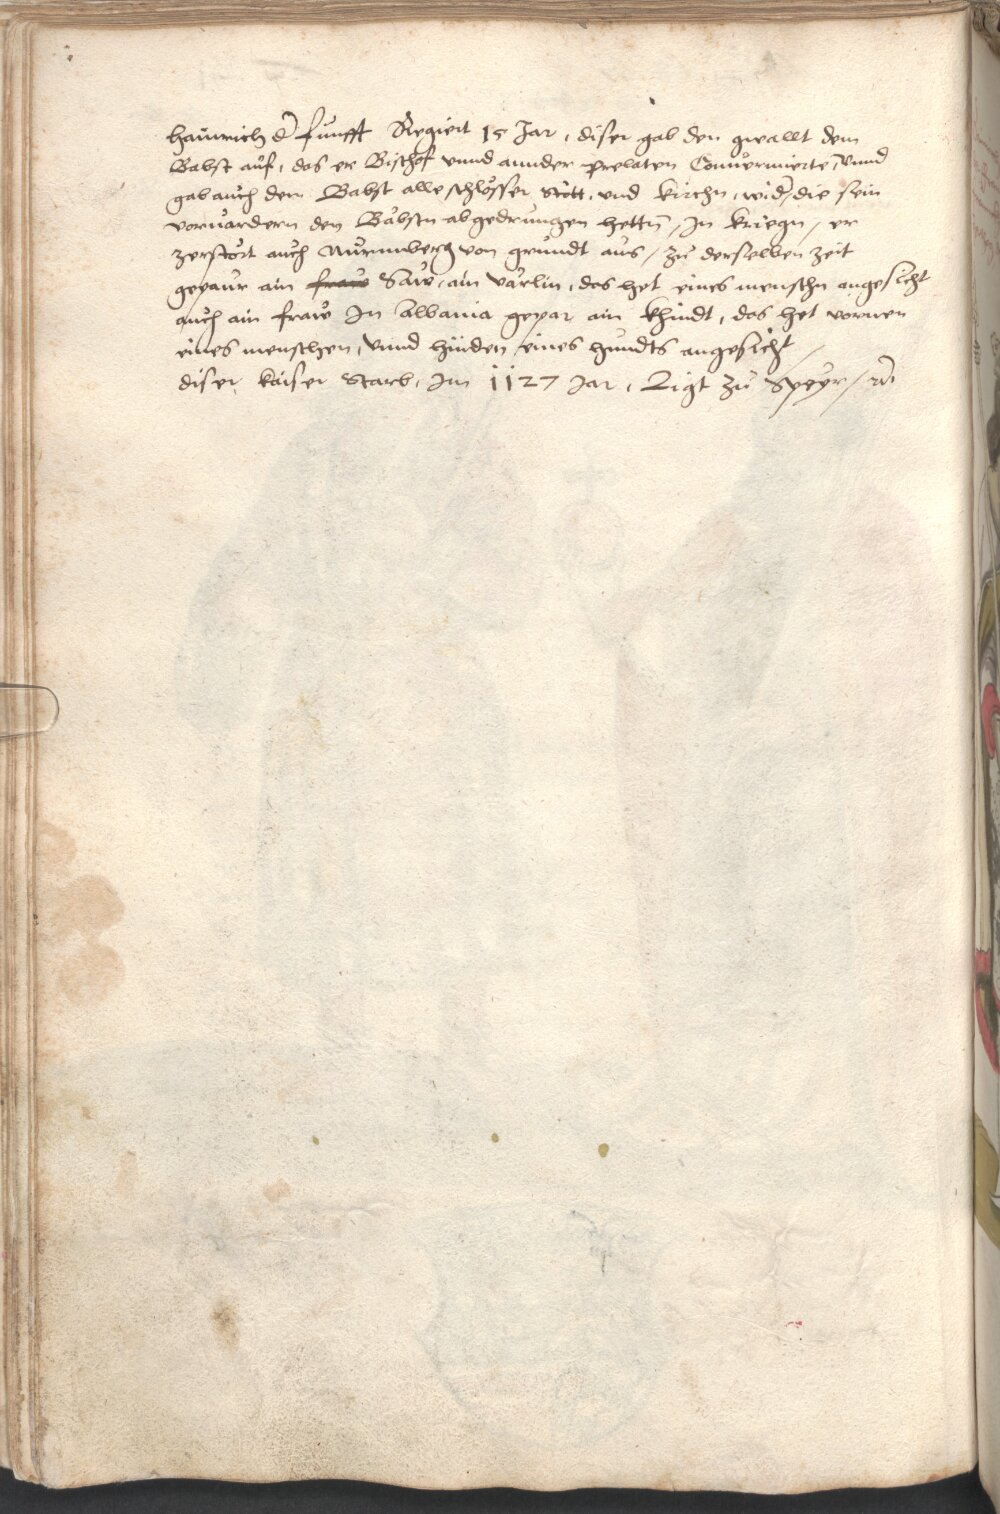 hainrich d' funfft Regiert 15 Jar, diser gab den gwallt dem
Babst auf, das er Bischof vnnd annder prelaten Conuermierte, vnnd
gab auch dem Babst alle schlösser Stött, vnd kirchn, wid' die sein
voruardern den Bäbstn abgedrungen hettn, In kriegn, er
zerstört auch Nurmwerg von grundt aus, Zu derselben zeit
gepaur ain fraw Saw, ain värlin, das het eines menschn angesicht
auch ain fraw In Albania gepar ain khindt, das het vornen
eines menschen, vnnd hinden eines hundts angesicht
diser kaiser Starb, Im 1127 Jar, Ligt zu Speyr,